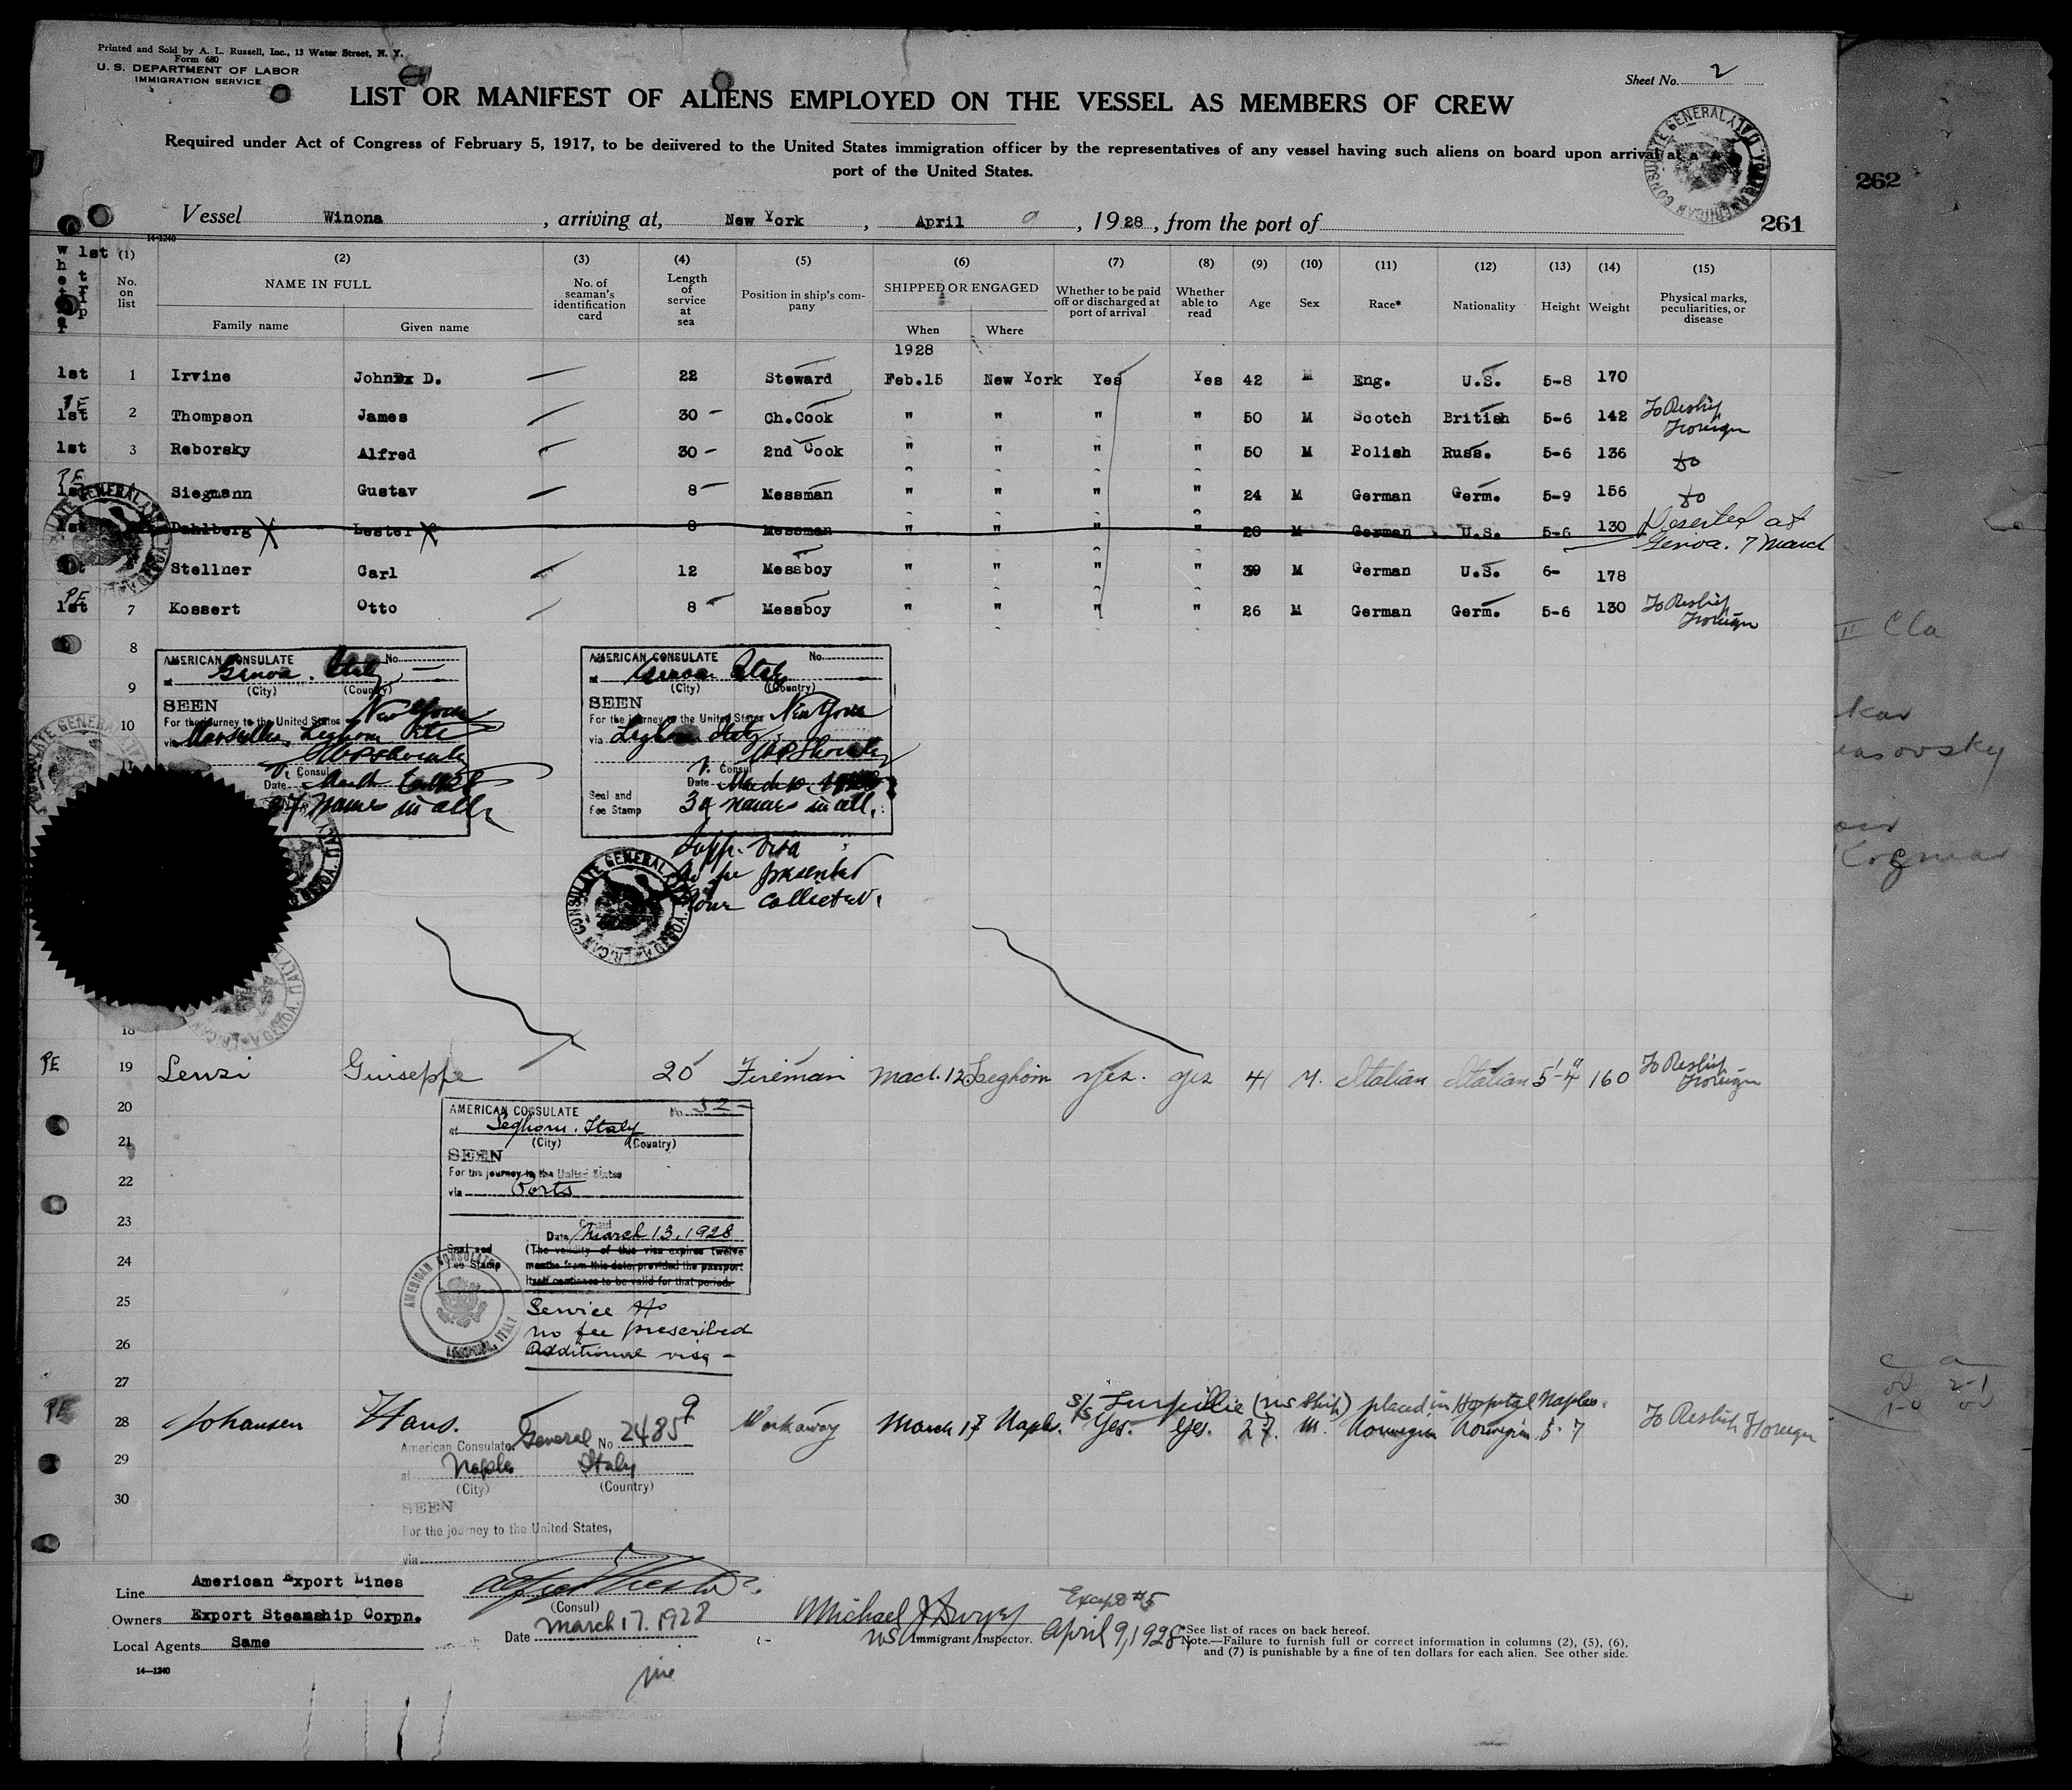 Printed and Sold by A. L. Russell, Inc., 13 Water Street, N. Y.
Form 680
U. S. DEPARTMENT OF LABOR
IMMIGRATION SERVICE
Sheet No. 2
LIST OR MANIFEST OF ALIENS EMPLOYED ON THE VESSEL AS MEMBERS OF CREW
Required under Act of Congress of February 5, 1917, to be delivered to the United States immigration officer by the representatives of any vessel having such aliens on board upon arrival at a
port of the United States.
AMERICAN CONSULATE GENERAL
262
Vessel Winona, arriving at, New York, April 1928, from the port of
261
14-1240
1st trip
(1) (2) (3) (4) (5) (6) (7) (8) (9) (10) (11) (12) (13) (14) (15)
No. on list
NAME IN FULL
Family name Given name
No. of seaman's identification card
Length of service at sea
Position in ship's company
SHIPPED OR ENGAGED
When Where
Whether to be paid off or discharged at port of arrival
Whether able to read
Age Sex Race* Nationality Height Weight
Physical marks, peculiarities, or disease
1928
1st 1 Irvine John D. 22 Steward Feb.15 New York Yes Yes 42 M Eng. U.S. 5-8 170
PE
1st 2 Thompson James 30 Ch.Cook " " " " 50 M Scotch British 5-6 142 To Reship Foreign
1st 3 Reborsky Alfred 30 2nd Cook " " " " 50 M Polish Russ. 5-6 136 do
PE
1st Siegmann Gustav 8 Messman " " " " 24 M German Germ. 5-9 156 do
1st Dahlberg Lester 8 Messman " " " " 28 M German U.S. 5-6 130 Deserted at Genoa. 7 March
Stellner Carl 12 Messboy " " " " 39 M German U.S. 6- 178
PE
1st 7 Kossert Otto 8 Messboy " " " " 26 M German Germ. 5-6 130 To Reship Foreign
8
9
10
AMERICAN CONSULATE No.
at Genoa. Italy
(City) (Country)
SEEN
For the journey to the United States New York
via Marseilles, Leghorn
V. Consul
Date
37 names in all
AMERICAN CONSULATE No.
at Genoa Italy
(City) (Country)
SEEN
For the journey to the United States New York
via Leghorn Italy
V. Consul
Date March
Seal and
Fee Stamp
names in all.
Supp. Visa
No fee presented
None collected.
AMERICAN CONSULATE GENERAL GENOA, ITALY
18
PE 19 Lenzi Guiseppe 20 Fireman Mach. 12 Leghorn yes. yes 41 M. Italian Italian 5'-4" 160 To Reship Foreign
20
21
22
23
24
25
26
27
AMERICAN CONSULATE No. 52-
at Leghorn. Italy
(City) (Country)
SEEN
For the journey to the United States
via Ports
Consul
Date March 13, 1928
Seal and Fee Stamp
(The validity of this visa expires twelve
months from this date, provided the passport
itself continues to be valid for that period.
AMERICAN CONSULATE LEGHORN, ITALY
Service No
no fee prescribed
Additional visa -
(US Ship) placed in Hospital Naples.
PE 28 Johansen Hans. 9 Workaway March 17 Naples. Yes. Yes. 27. M. Norwegian Norwegian 5-7 To Reship Foreign
29
30
American Consulate General No 2485
at Naples Italy
(City) (Country)
SEEN
For the journey to the United States,
via
(Consul)
Date March 17. 1928
Line American Export Lines
Owners Export Steamship Corpn.
Local Agents Same
14-1240
Except #5
Michael J Dwyer
US Immigrant Inspector. April 9, 1928
*See list of races on back hereof.
Note.—Failure to furnish full or correct information in columns (2), (5), (6),
and (7) is punishable by a fine of ten dollars for each alien. See other side.